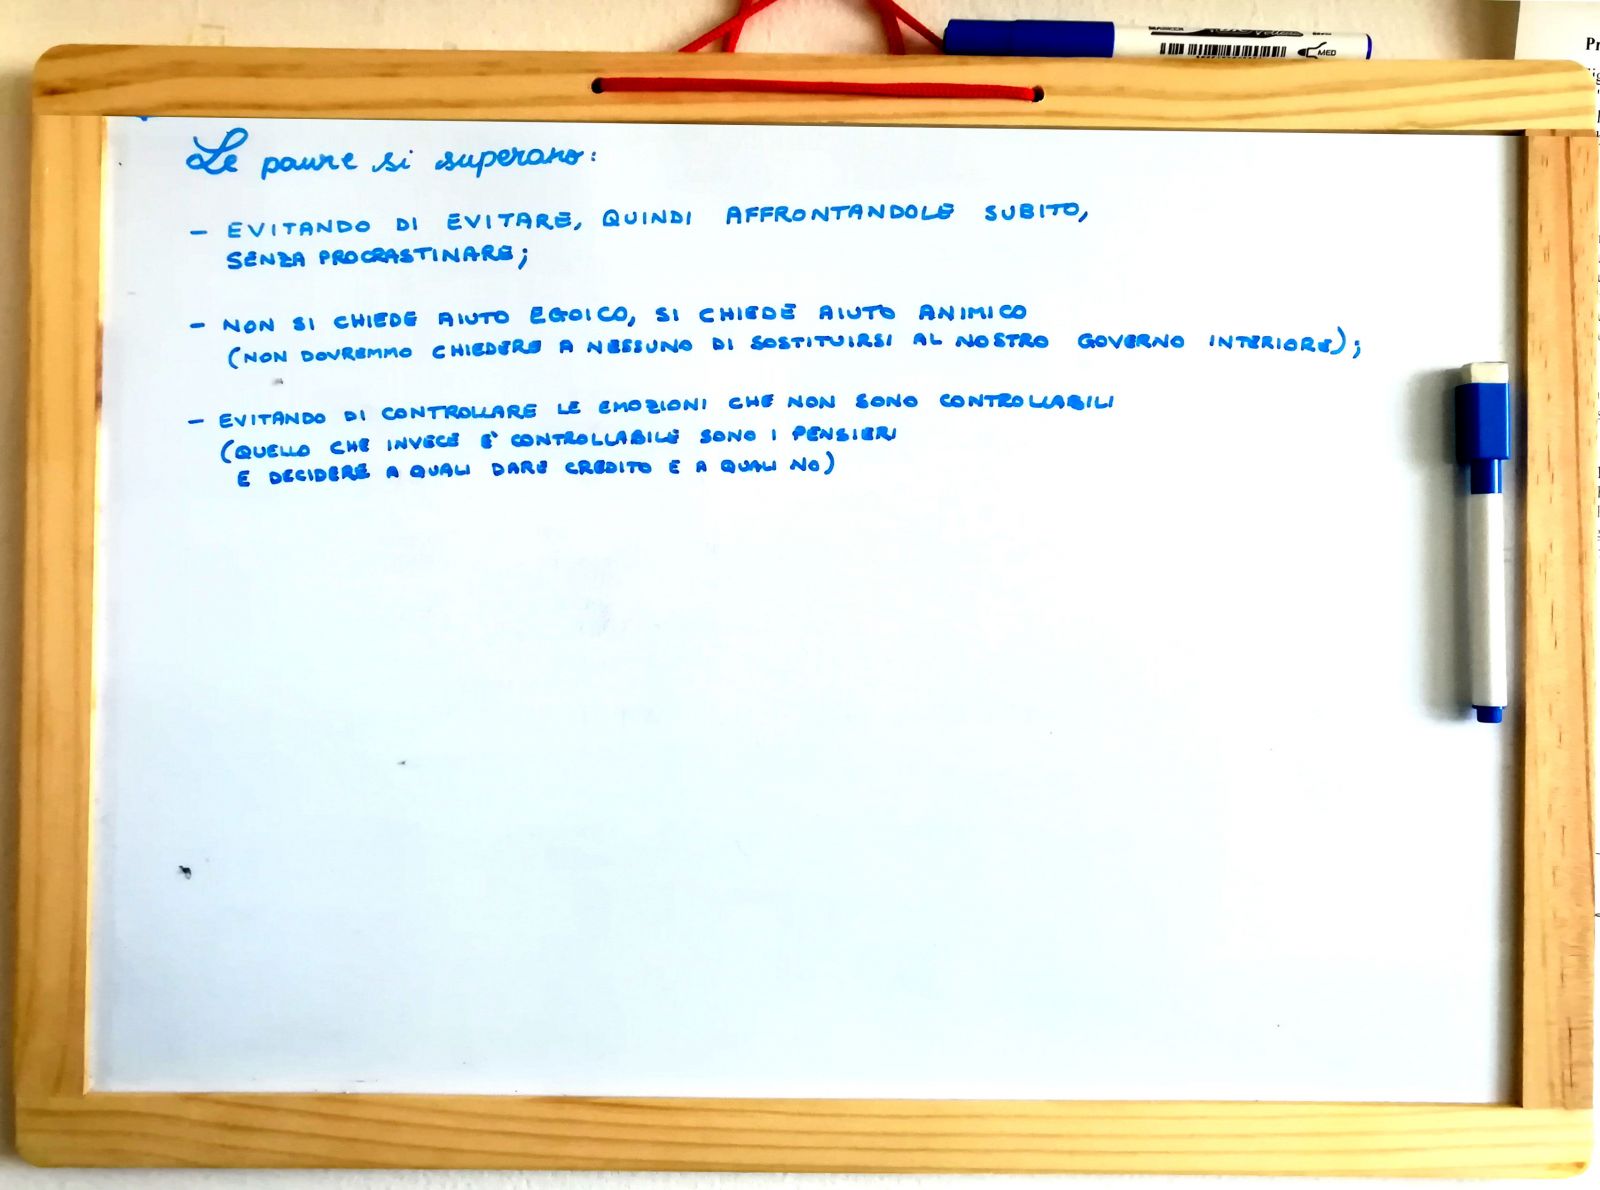 MED
Pr
Le paure si superano:
- EVITANDO DI EVITARE, QUINDI AFFRONTANDOLE SUBITO,
SENZA PROCRASTINARE;
- NON SI CHIEDE AIUTO EGOICO, SI CHIEDE AIUTO ANIMICO
(NON DOVREMMO CHIEDERE A NESSUNO DI SOSTITUIRSI AL NOSTRO GOVERNO INTERIORE);
- EVITANDO DI CONTROLLARE LE EMOZIONI CHE NON SONO CONTROLLABILI
(QUELLO CHE INVECE E' CONTROLLABILE SONO I PENSIERI
E DECIDERE A QUALI DARE CREDITO E A QUALI NO)